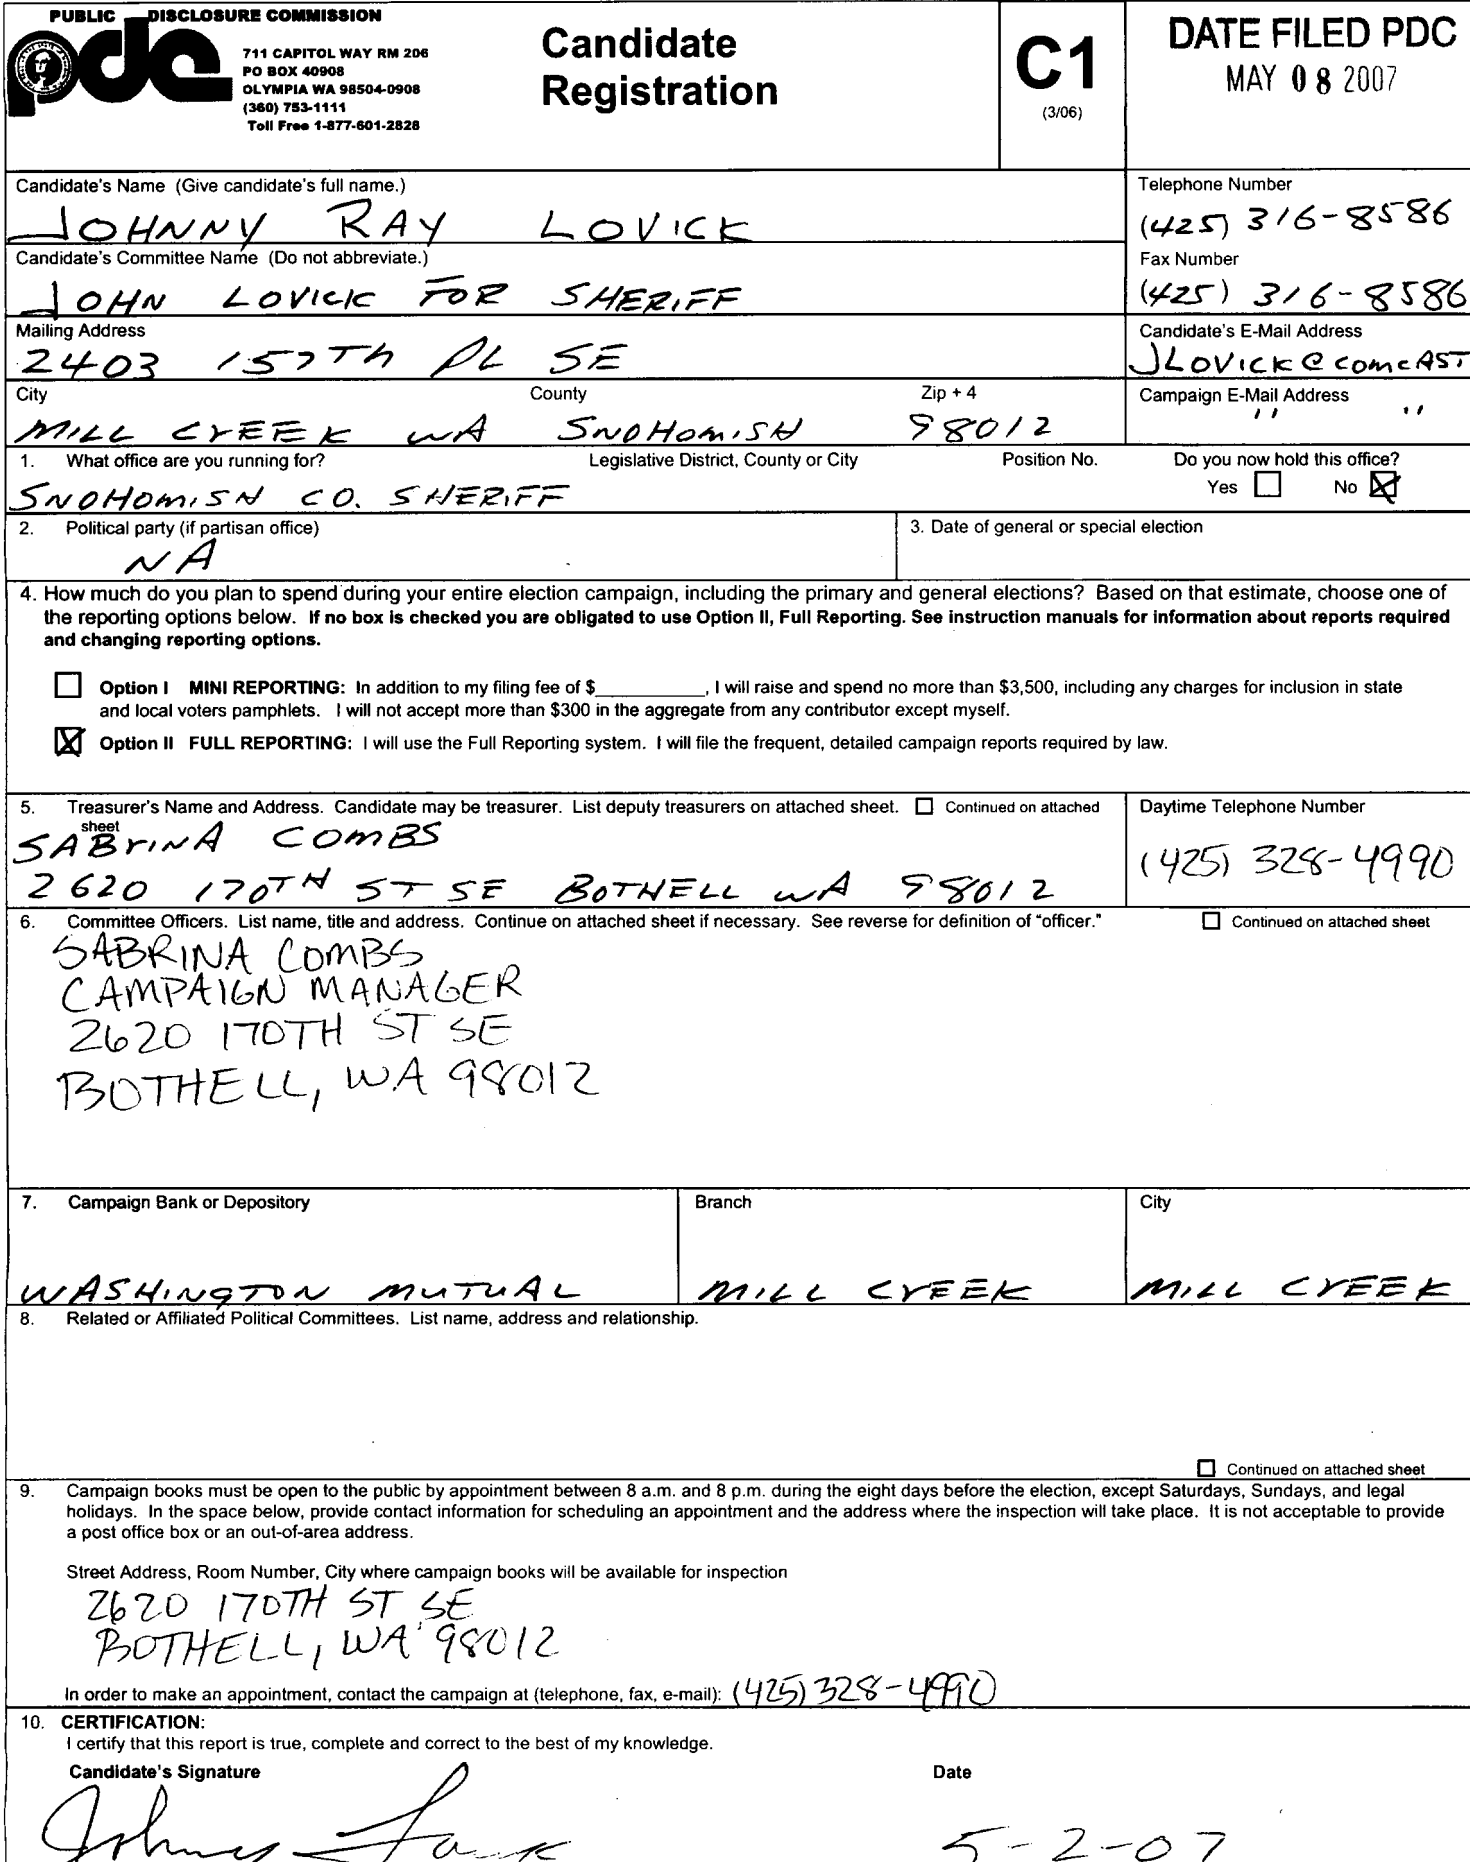 PUBLIC DISCLOSURE COMMISSION
pdc
711 CAPITOL WAY RM 206
PO BOX 40908
OLYMPIA WA 98504-0908
(360) 753-1111
Toll Free 1-877-601-2828
Candidate
Registration
C1
(3/06)
DATE FILED PDC
MAY 08 2007
Candidate's Name (Give candidate's full name.)
JOHNNY RAY LOVICK
Telephone Number
(425) 316-8586
Candidate's Committee Name (Do not abbreviate.)
JOHN LOVICK FOR SHERIFF
Fax Number
(425) 316-8586
Mailing Address
2403 157Th PL SE
Candidate's E-Mail Address
JLOVICK@comcAST
City County Zip + 4
MILL CrEEK WA SNOHOmISH 98012
Campaign E-Mail Address
" "
1. What office are you running for? Legislative District, County or City Position No. Do you now hold this office?
SNOHOmISH CO. SHERIFF
Yes No
2. Political party (if partisan office)
NA
3. Date of general or special election
4. How much do you plan to spend during your entire election campaign, including the primary and general elections? Based on that estimate, choose one of
the reporting options below. If no box is checked you are obligated to use Option II, Full Reporting. See instruction manuals for information about reports required
and changing reporting options.
Option I MINI REPORTING: In addition to my filing fee of $__________, I will raise and spend no more than $3,500, including any charges for inclusion in state
and local voters pamphlets. I will not accept more than $300 in the aggregate from any contributor except myself.
Option II FULL REPORTING: I will use the Full Reporting system. I will file the frequent, detailed campaign reports required by law.
5. Treasurer's Name and Address. Candidate may be treasurer. List deputy treasurers on attached sheet. Continued on attached
sheet
SABrINA COmBS
2620 170TH ST SE BOTHELL WA 98012
Daytime Telephone Number
(425) 328-4990
6. Committee Officers. List name, title and address. Continue on attached sheet if necessary. See reverse for definition of "officer." Continued on attached sheet
SABRINA COMBS
CAMPAIGN MANAGER
2620 170TH ST SE
BOTHELL, WA 98012
7. Campaign Bank or Depository
WASHINGTON MUTUAL
Branch
MILL CrEEK
City
MILL CrEEK
8. Related or Affiliated Political Committees. List name, address and relationship.
Continued on attached sheet
9. Campaign books must be open to the public by appointment between 8 a.m. and 8 p.m. during the eight days before the election, except Saturdays, Sundays, and legal
holidays. In the space below, provide contact information for scheduling an appointment and the address where the inspection will take place. It is not acceptable to provide
a post office box or an out-of-area address.
Street Address, Room Number, City where campaign books will be available for inspection
2620 170TH ST SE
BOTHELL, WA 98012
In order to make an appointment, contact the campaign at (telephone, fax, e-mail): (425) 328-4990
10. CERTIFICATION:
I certify that this report is true, complete and correct to the best of my knowledge.
Candidate's Signature Date
5-2-07